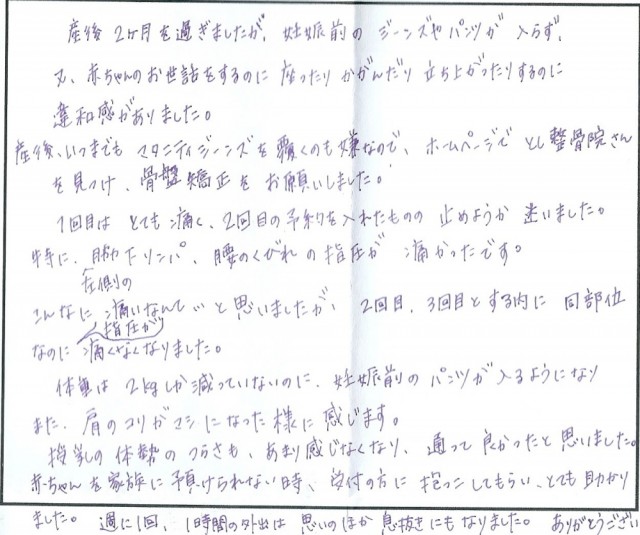 産後 2ヶ月を過ぎましたが、妊娠前のジーンズやパンツが入らず、
又、赤ちゃんのお世話をするのに座ったりかがんだり立ち上がったりするのに
違和感がありました。
産後、いつまでもマタニティジーンズを覆くのも嫌なので、ホームページでとし整骨院さん
を見つけ、骨盤矯正をお願いしました。
1回目はとても痛く、2回目の予約を入れたものの止めようか迷いました。
特に、脇下リンパ、腰のくびれの指圧が痛かったです。
左側の
こんなに痛いなんて…と思いましたが、2回目、3回目とする内に同部位
指圧が
なのに痛くなくなりました。
体重は2kgしか減っていないのに、妊娠前のパンツが入るようになり
また、肩のコリがマシになった様に感じます。
授乳の体勢のつらさも、あまり感じなくなり、通って良かったと思いました。
赤ちゃんを家族に預けられない時、受付の方に抱っこしてもらい、とても助かり
ました。週に1回、1時間の外出は思いのほか息抜きにもなりました。ありがとうござい